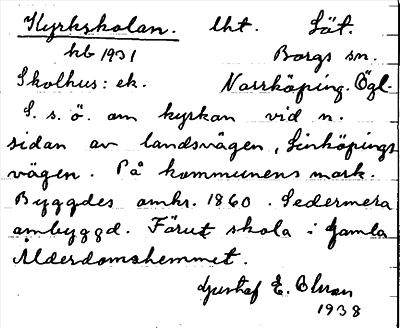 Kyrkskolan. lht. Löt.
hb 1931 Borgs sn.
Skolhus: ek. Norrköping. Ögl.
S. s. ö. om kyrkan vid n.
sidan av landsvägen, Linköpings
vägen. På kommunens mark.
Byggdes omkr. 1860. Sedermera
ombyggd. Förut skola i Gamla
Ålderdomshemmet.
Gustaf E. Olsson
1938